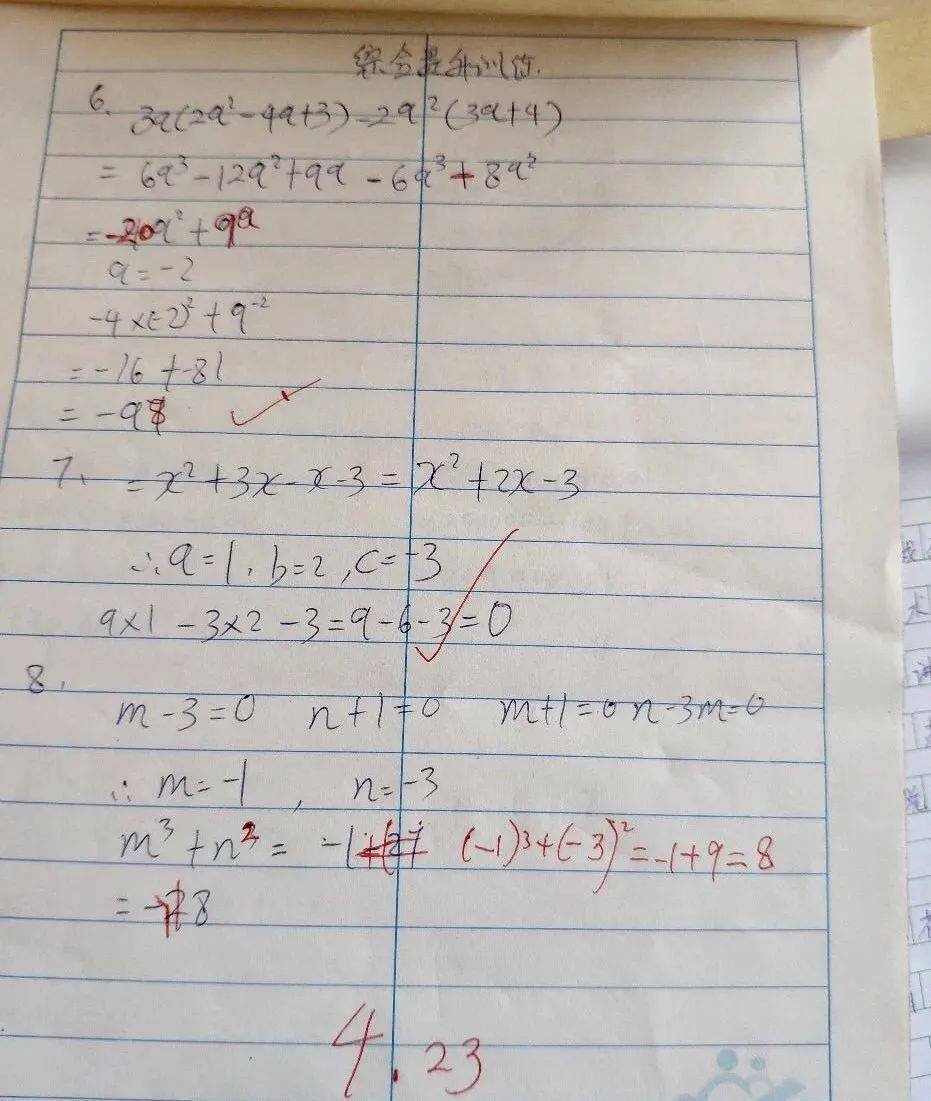 综合提升训练.
6. 3a(2a²-4a+3)-2a²(3a+4)
= 6a³-12a²+9a-6a³-8a²
=-20a²+9a
a=-2
-4×(-2)²+9⁻²
=-16+-81
= -98
7. =x²+3x-x-3=x²+2x-3
∴a=1, b=2, c=-3
9×1-3×2-3=9-6-3=0
8.
m-3=0 n+1=0 m+1=0 n-3m=0
∴ m=-1, n=-3
m³+n²= -1 (-1)³+(-3)²=-1+9=8
= 8
4.23